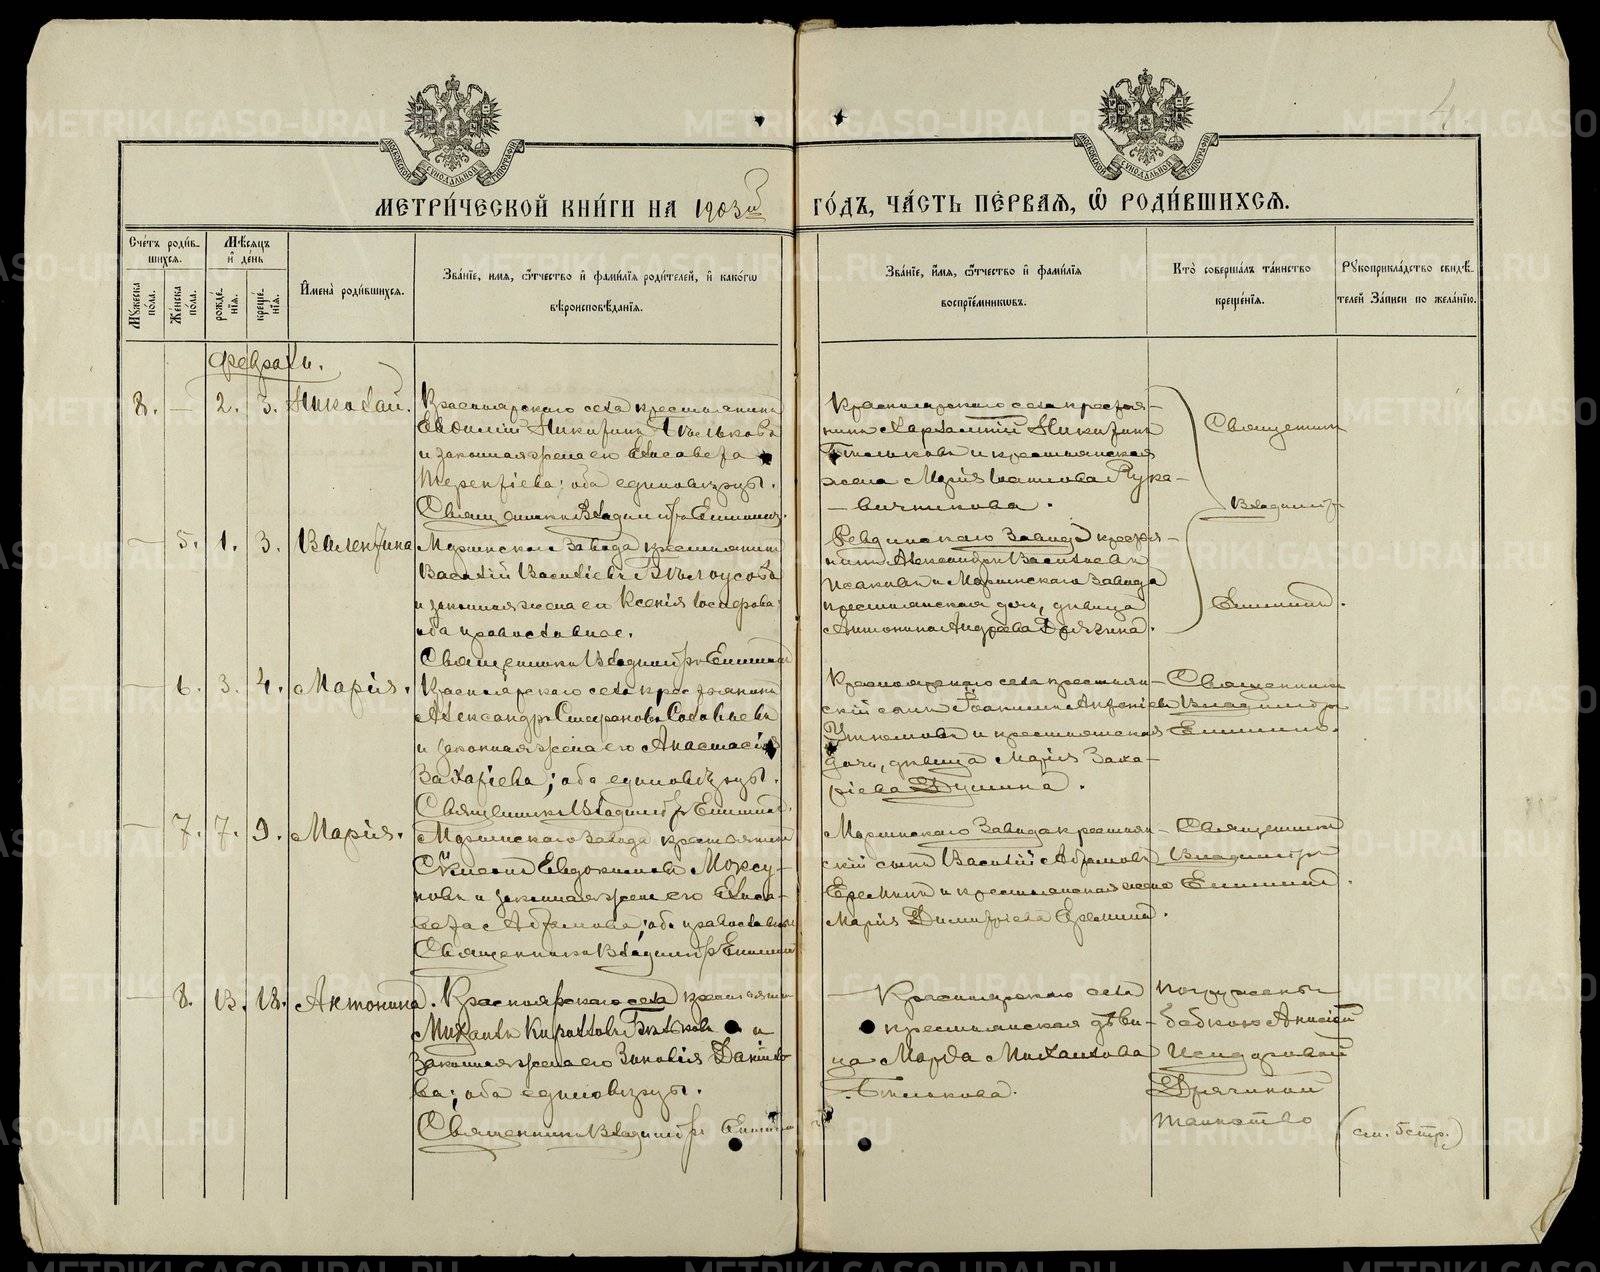 МЕТРИ́ЧЕСКОЙ КНИ́ГИ НА 1903й ГО́ДЪ, ЧА́СТЬ ПЕ́РВАѦ, Ѿ РОДИ́ВШИХСѦ.
Сче́тъ роди́в-
шихсѧ.
Мѣ́сѧцъ
и҆ де́нь
Мꙋ́жеска
по́ла.
Же́нска
по́ла.
рожде́-
нїѧ.
креще́-
нїѧ.
И҆мена̀ роди́вшихсѧ.
Зва́нїе, и҆́мѧ, ѻ҆́тчество и҆ фамѝлїѧ роди́телей, и҆ како́гѡ
вѣроисповѣ́данїѧ.
Зва́нїе, и҆́мѧ, ѻ҆́тчество и҆ фами́лїѧ
воспрїе́мникѡвъ.
Кто̀ соверша́лъ та́инство
креще́нїѧ.
Рꙋкоприкла́дство свидѣ́-
телей за́писи по жела́нїю.
Февраль.
8. — 2. 3. Николай.
Красноярскаго села крестьянинъ
Евфимій Никитинъ
и законная жена его Елисавета
Терентіева; оба единовѣрцы.
Священникъ Владиміръ
Красноярскаго села крестья-
нинъ Никитинъ
и крестьянская
жена Марія Рука-
вичникова.
Священникъ
Владиміръ
— 5. 1. 3. Валентина
Маріинскаго завода крестьянинъ
Василій Васильевъ Бѣлоусовъ
и законная жена его Ксенія
оба православные.
Священникъ Владиміръ
Ревдинскаго завода крестья-
нинъ Александръ Васильевъ
и Маріинскаго завода
крестьянская дочь, дѣвица
Антонина Андреева Дрягина.
— 6. 3. 4. Марія.
Красноярскаго села крестьянинъ
Александръ Стефановъ Соловьевъ
и законная жена его Анастасія
Захаріева; оба единовѣрцы.
Священникъ Владиміръ
Красноярскаго села крестьян-
скій сынъ Іоакимъ
и крестьянская
дочь, дѣвица Марія Заха-
ріева
Священникъ
Владиміръ
— 7. 7. 9. Марія.
Маріинскаго завода крестьянинъ
Евдокимовъ Моксу-
новъ и законная жена его Елиса-
вета Абрамова; оба православные
Священникъ Владиміръ
Маріинскаго завода крестьян-
скій сынъ Василій Абрамовъ
Ереминъ и крестьянская жена
Марія Димитріева Еремина.
Священникъ
Владиміръ
— 8. 13. 18. Антонина.
Красноярскаго села крестьянинъ
Михаилъ Кирилловъ и
законная жена его Зиновія Данило-
ва; оба единовѣрцы.
Священникъ Владиміръ
Красноярскаго села
крестьянская дѣви-
ца Марѳа Михаилова
погружены
бабкою Анисіей
Исидоровой
Дрягиной
таинство
(см. 5 стр.)
METRIKI.GASO-URAL.RU